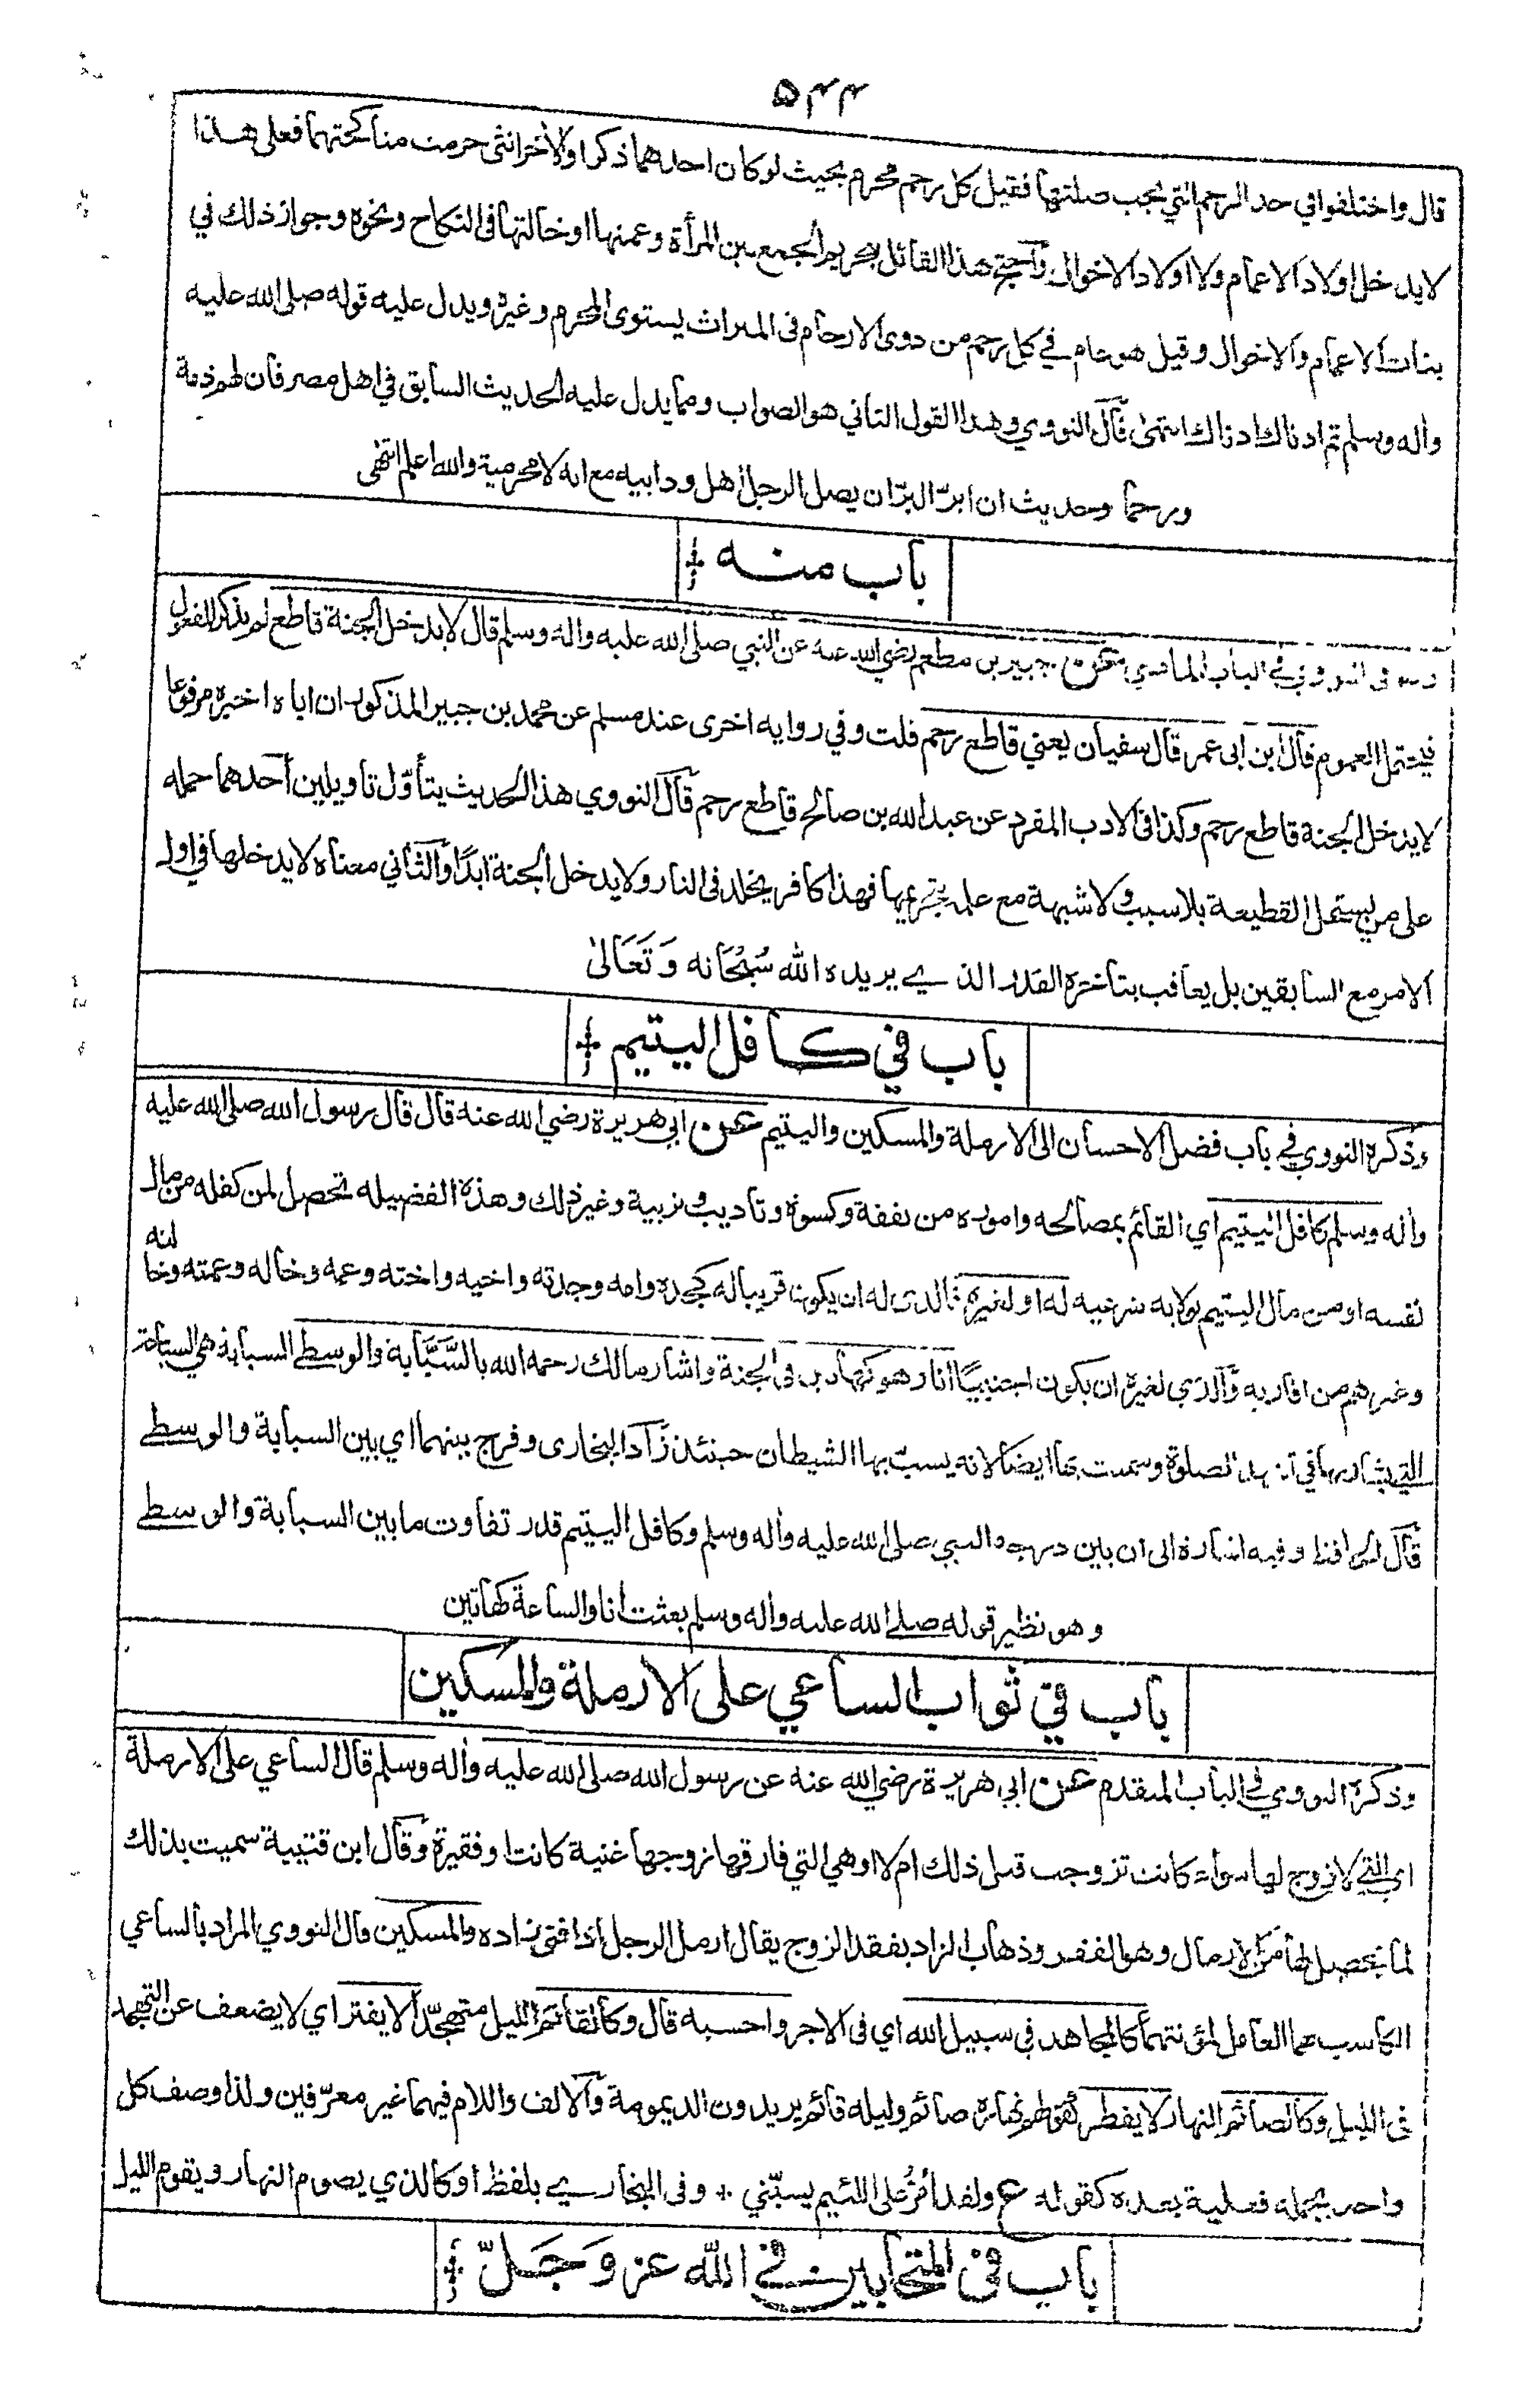 ۵۴۴
قال واختلفوا في حد الرحم التي يجب صلتها فقيل كل رحم محرم بحيث لو كان احدهما ذكرا والاخر انثى حرمت مناكحتهما فعلى هذا
لا يدخل اولاد الاعمام ولا اولاد الاخوال واحتج هذا القائل بتحريم الجمع بين المرأة وعمتها او خالتها في النكاح ونحوه وجواز ذلك في
بنات الاعمام والاخوال وقيل هو عام في كل رحم من ذوى الارحام في الميراث يستوى المحرم وغيره ويدل عليه قوله صلى الله عليه
واله وسلم ثم ادناك ادناك انتهى قال النووي وهذا القول الثاني هو الصواب ومما يدل عليه الحديث السابق في اهل مصر فان لهم ذمة
ورحما وحديث ان ابرّ البرّ ان يصل الرجل اهل ود ابيه مع انه لا محرمية والله اعلم انتهى
باب منه
النووي في الباب الماضي عن جبير بن مطعم رضي الله عنه عن النبي صلى الله عليه واله وسلم قال لا يدخل الجنة قاطع لم يذكر المفعول
فيحتمل العموم قال ابن ابى عمر قال سفيان يعني قاطع رحم قلت وفي رواية اخرى عند مسلم عن محمد بن جبير المذكور ان اباه اخبره مرفوعا
لا يدخل الجنة قاطع رحم وكذا في الادب المفرد عن عبد الله بن صالح قاطع رحم قال النووي هذا الحديث يتأوّل تاويلين احدهما حمله
على من يستحل القطيعة بلا سبب ولا شبهة مع علمه بتحريمها فهذا كافر يخلد في النار ولا يدخل الجنة ابدًا والثاني معناه لا يدخلها في اول
الامر مع السابقين بل يعاقب بتاخره القدر الذي يريده الله سُبْحَانه وَتَعَالىٰ
باب في كافل اليتيم
وذكره النووي في باب فضل الاحسان الى الارملة والمسكين واليتيم عن ابي هريرة رضي الله عنه قال قال رسول الله صلى الله عليه
واله وسلم كافل اليتيم اي القائم بمصالحه واموره من نفقة وكسوة وتاديب وتربية وغير ذلك وهذه الفضيلة تحصل لمن كفله من مال
نفسه او من مال اليتيم بولاية شرعية له او لغيره فالذى له ان يكون قريبا له كجده وامه وجدته واخيه واخته وعمه وخاله وعمته وخالته
وغيرهم من اقاربه والذي لغيره ان يكون اجنبيًا انا وهو كهاتين في الجنة واشار مالك رحمه الله بالسَّبَّابة والوسطى السبابة هي السباحة
التي يشار بها في تشهد الصلوة وسميت بها ايضا لانه يسبّ بها الشيطان حينئذ زاد البخارى وفرج بينهما اي بين السبابة والوسطے
قال الحافظ وفيه اشارة الى ان بين درجة النبي صلى الله عليه واله وسلم وكافل اليتيم قدر تفاوت ما بين السبابة والوسطے
وهو نظير قوله صلے الله عليه واله وسلم بعثت انا والساعة كهاتين
باب في ثواب الساعي على الارملة والمسكين
وذكره النووي في الباب المتقدم عن ابي هريرة رضي الله عنه عن رسول الله صلى الله عليه واله وسلم قال الساعي على الارملة
اي التي لا زوج لها سواء كانت تزوجت قبل ذلك ام لا او هي التي فارقها زوجها غنية كانت او فقيرة وقال ابن قتيبة سميت بذلك
لما يحصل لها من الارمال وهو الفقر وذهاب الزاد بفقد الزوج يقال ارمل الرجل اذا فنى زاده والمسكين قال النووي المراد بالساعي
الكاسب لهما العامل لمؤنتهما كالمجاهد في سبيل الله اي في الاجر واحسبه قال وكالقائم الليل متهجّدا لا يفتر اي لا يضعف عن التهجد
في الليل وكالصائم النهار لا يفطر كقولهم نهاره صائم وليله قائم يريدون الديمومة والالف واللام فيهما غير معرّفين ولذا وصف كل
واحد بجملة فعلية بعده كقوله ع ولقد أمُرُّ على اللئيم يسبّني ٭ وفي البخاري بلفظ او كالذي يصوم النهار ويقوم الليل
باب في المتحابين في اللّٰه عز وَجَلّ